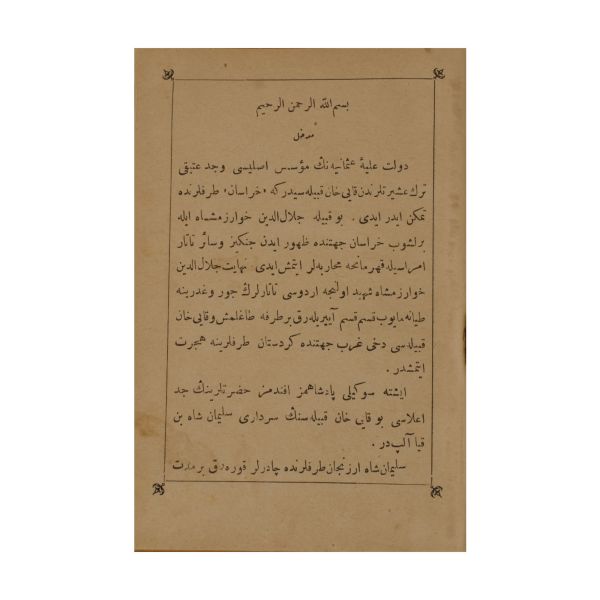 بسم الله الرحمن الرحیم
مدخل
دولت علیهٔ عثمانیه‌نڭ مؤسس اصلیسی وجد عتیقی
ترك عشیرتلرندن قایی خان قبیله سیدر که ، خراسان ، طرفلرنده
تمکن ایدر ایدی . بو قبیله جلال‌الدین خوارزمشاه ایله
برلشوب خراسان جهتنده ظهور ایدن جنکیز وسائر تاتار
امراسیله قهرمانجه محاربه‌لر ایتمش ایدی نهایت جلال‌الدین
خوارزمشاه شهید اولنجه اردوسی تاتارلرڭ جور وغدرینه
طیانه‌مایوب قسم قسم آییریله‌رق بر طرفه طاغلمش وقایی خان
قبیله‌سی دخی غرب جهتنده کردستان طرفلرینه هجرت
ایتمشدر .
ایشته سوکیلی پادشاهمز افندمز حضرتلرینڭ جد
اعلاسی بو قایی خان قبیله‌سنڭ سرداری سلیمان شاه بن
قیا آلپ در .
سلیمان شاه ارزنجان طرفلرنده چادرلر قوره‌رق بر مدت